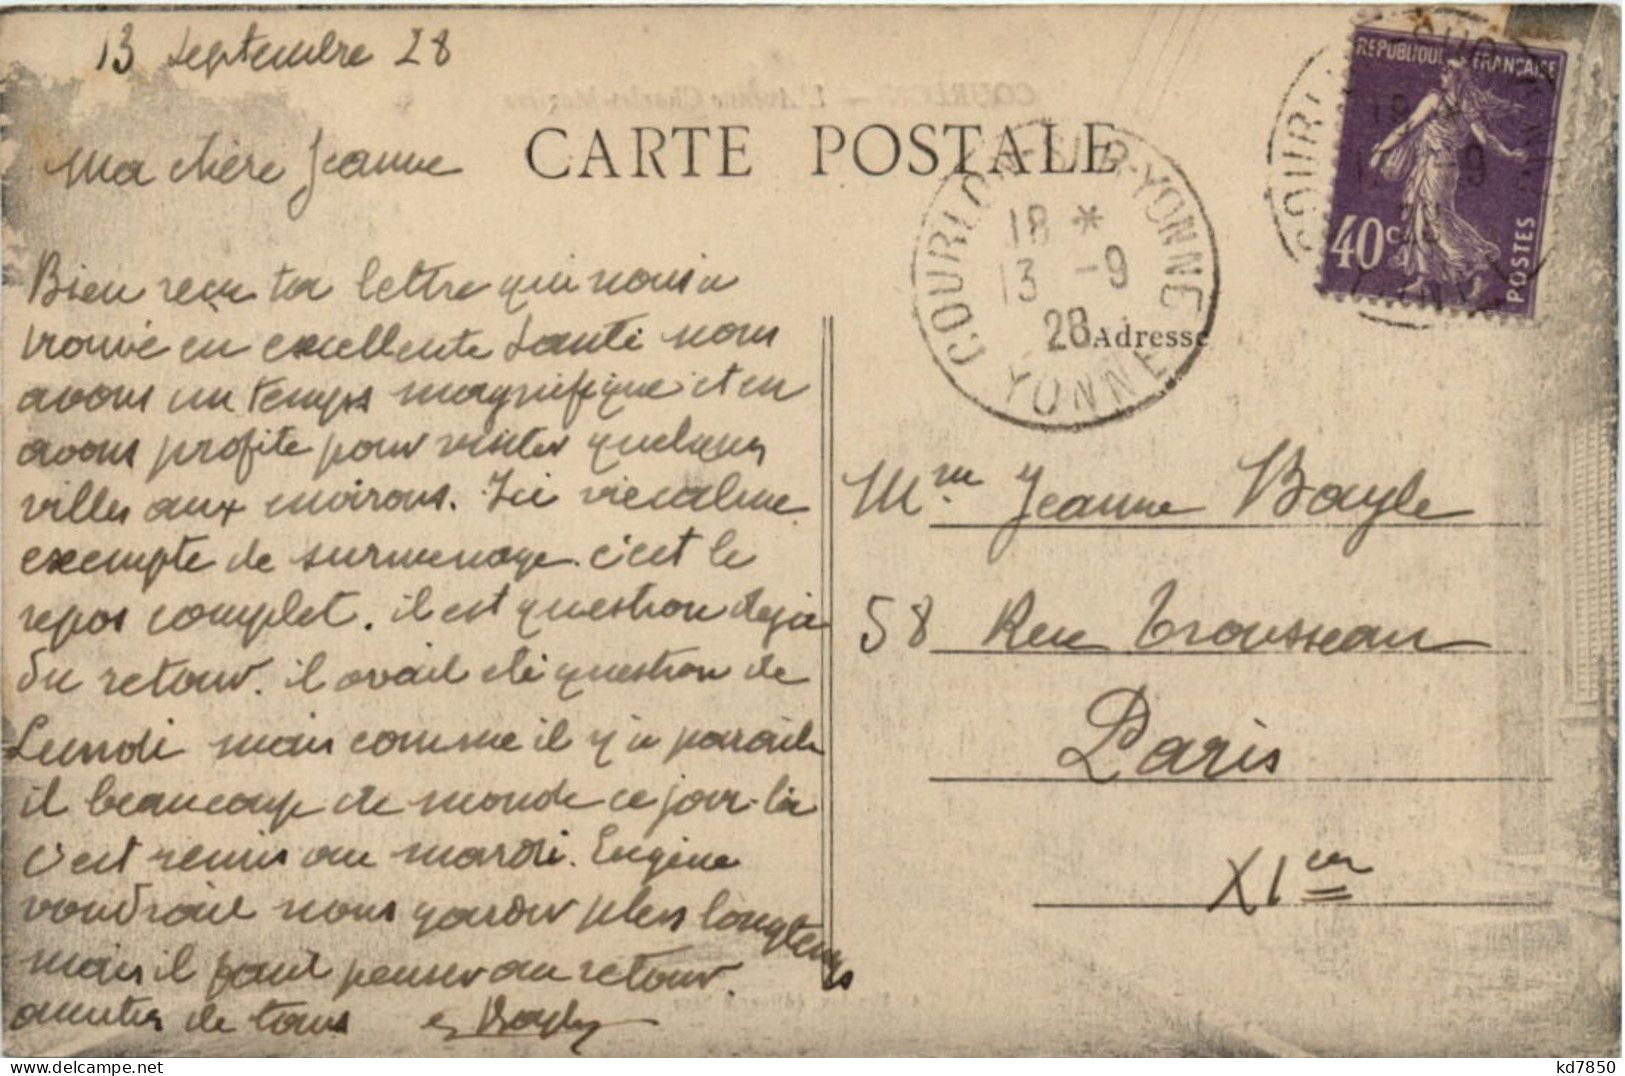 13 Septembre 28
CARTE POSTALE
Ma chère Jeanne
Bien reçu ta lettre qui nous a
trouvé en excellente santé nous
avons un temps magnifique et en
avons profité pour visiter quelques
villes aux environs. Ici vie calme
exempte de surmenage. c'est le
repos complet. il est question deja
du retour. il avait été question de
Lundi mais comme il y a parait
il beaucoup de monde ce jour-là
c'est remis au mardi. Eugène
voudrait nous garder plus longtemps
mais il faut penser au retour.
amitiés de tous
REPUBLIQUE FRANÇAISE
40c
POSTES
COURLON-SUR-YONNE
18 *
13 -9
28
YONNE
Adresse
Mme Jeanne Bayle
58 Rue Trousseau
Paris
XIer
kd7850